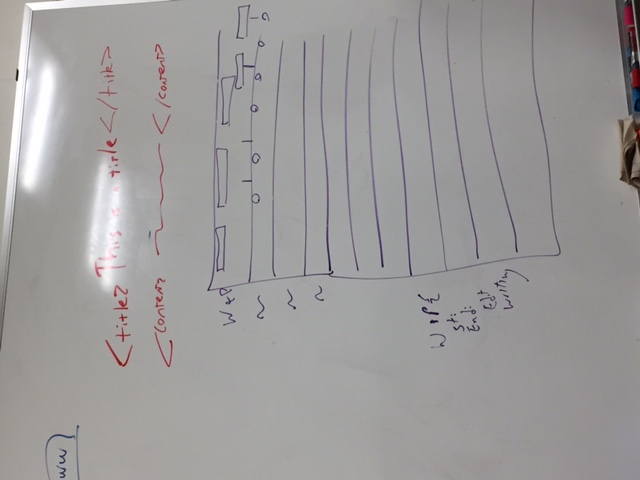 ww
<title> This is a title </title>
<content> </content>
W+P
W
St:
End:
Edit
Writing